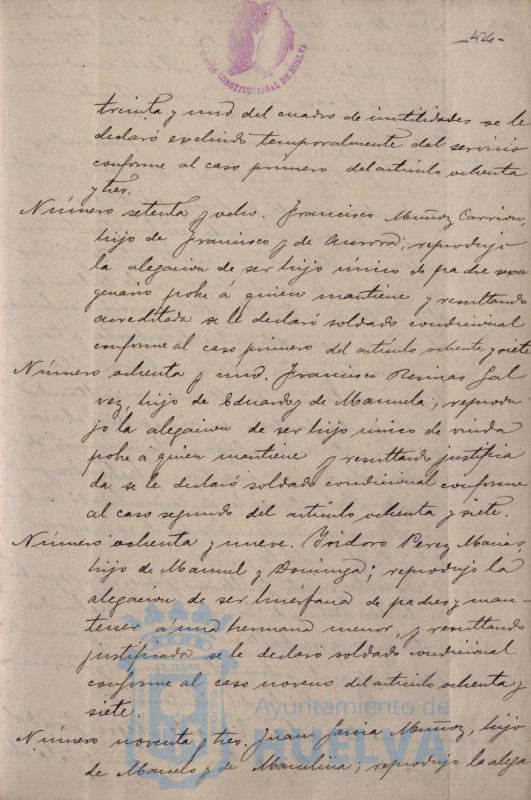 -426-
ALCALDIA CONSTITUCIONAL DE HUELVA
treinta y uno del cuadro de inutilidades se le
declaró excluido temporalmente del servicio
conforme al caso primero del artículo ochenta
y tres.
Número setenta y ocho. Francisco Muñoz Carrion,
hijo de Francisco y de Aurora; reprodujo
la alegacion de ser hijo único de padre sexa
genario pobre á quien mantiene y resultando
acreditada se le declaró soldado condicional
conforme al caso primero del artículo ochenta y siete
Número ochenta y uno. Francisco Resinas Gal
vez, hijo de Eduardo y de Manuela; reprodu-
jo la alegacion de ser hijo único de viuda
pobre á quien mantiene y resultando justifica
da se le declaró soldado condicional conforme
al caso segundo del artículo ochenta y siete.
Número ochenta y nueve. Isidoro Perez Macias,
hijo de Manuel y Dominga; reprodujo la
alegacion de ser huérfano de padres y man-
tener á una hermana menor, y resultando
justificada se le declaró soldado condicional
conforme al caso noveno del artículo ochenta y
siete.
Número noventa y tres. Juan Garcia Muñoz, hijo
de Marcelo y de Marcelina; reprodujo la alega
Ayuntamiento de
HUELVA